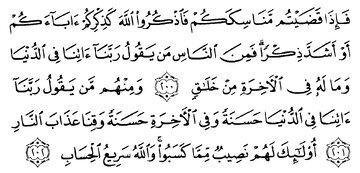 فَإِذَا قَضَيْتُم مَّنَاسِكَكُمْ فَاذْكُرُوا اللَّهَ كَذِكْرِكُمْ ءَابَآءَكُمْ
أَوْ أَشَدَّ ذِكْرًا ۗ فَمِنَ النَّاسِ مَن يَقُولُ رَبَّنَآ ءَاتِنَا فِي الدُّنْيَا
وَمَا لَهُ فِي الْآخِرَةِ مِنْ خَلَاقٍ ٢٠٠ وَمِنْهُم مَّن يَقُولُ رَبَّنَآ
ءَاتِنَا فِي الدُّنْيَا حَسَنَةً وَفِي الْآخِرَةِ حَسَنَةً وَقِنَا عَذَابَ النَّارِ
٢٠١ أُولَٰئِكَ لَهُمْ نَصِيبٌ مِّمَّا كَسَبُوا ۚ وَاللَّهُ سَرِيعُ الْحِسَابِ ٢٠٢